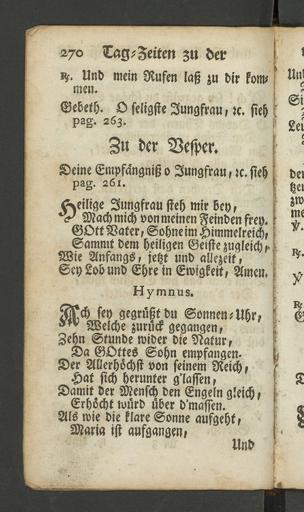 270 Tag-Zeiten zu der
℟. Und mein Rufen laß zu dir kom-
men.
Gebeth. O seligste Jungfrau, ꝛc. sieh
pag. 263.
Zu der Vesper.
Deine Empfängniß o Jungfrau, ꝛc. sieh
pag. 261.
Heilige Jungfrau steh mir bey,
Mach mich von meinen Feinden frey.
GOtt Vater, Sohne im Himmelreich,
Sammt dem heiligen Geiste zugleich,
Wie Anfangs, jetzt und allezeit,
Sey Lob und Ehre in Ewigkeit, Amen.
Hymnus.
Ach sey gegrüßt du Sonnen-Uhr,
Welche zurück gegangen,
Zehn Stunde wider die Natur,
Da GOttes Sohn empfangen.
Der Allerhöchst von seinem Reich,
Hat sich herunter g'lassen,
Damit der Mensch den Engeln gleich,
Erhöcht würd über d'massen.
Als wie die klare Sonne aufgeht,
Maria ist aufgangen,
Und